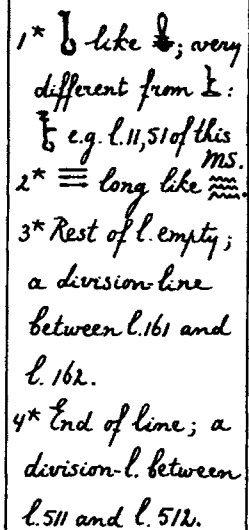 1* like ; very
different from :
e.g. l.11,51 of this
MS.
2* long like .
3* Rest of l. empty;
a division-line
between l.161 and
l. 162.
4* End of line; a
division-l. between
l.511 and l.512.